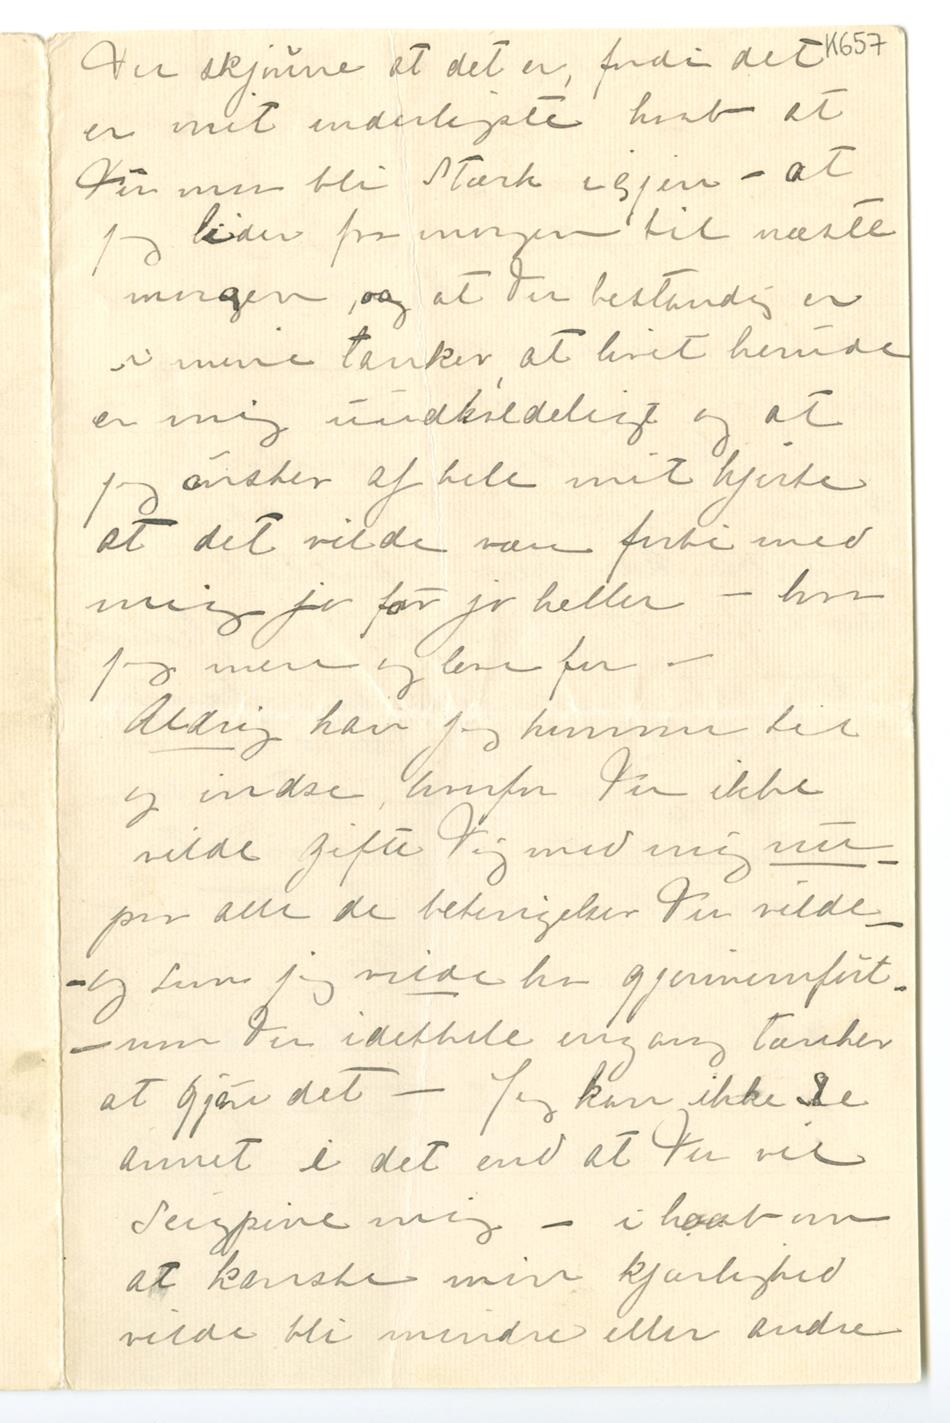 K657
Du skjønne at det er, fordi det
er mit inderligste haab at
Du maa bli stærk igjen – at
jeg lider fra morgen til næste
morgen, og at Du bestandig er
i mine tanker, at livet herude
er mig uudholdeligt og at
jeg ønsker af hele mit hjerte
at det vilde være forbi med
mig jo før jo heller – hva
jeg mere og leve for –
Aldrig har jeg kunnet til
og indse, hvorfor Du ikke
vilde gifte Dig med mig nu –
paa alle de betingelser Du vilde –
– og som jeg vilde ha gjennemført –
– naar Du idethele engang tænker
at gjøre det – Jeg kan ikke se
annet i det end at Du vil
seigpine mig – i haab om
at kanske min kjærlighed
vilde bli mindre eller andre